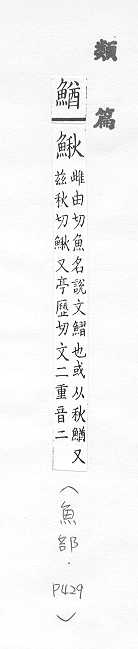 類篇
䲡鰍
雌由切魚名說文鰼也或从秋䲡又
茲秋切鰍又亭歷切文二重音二
（魚部．P429）